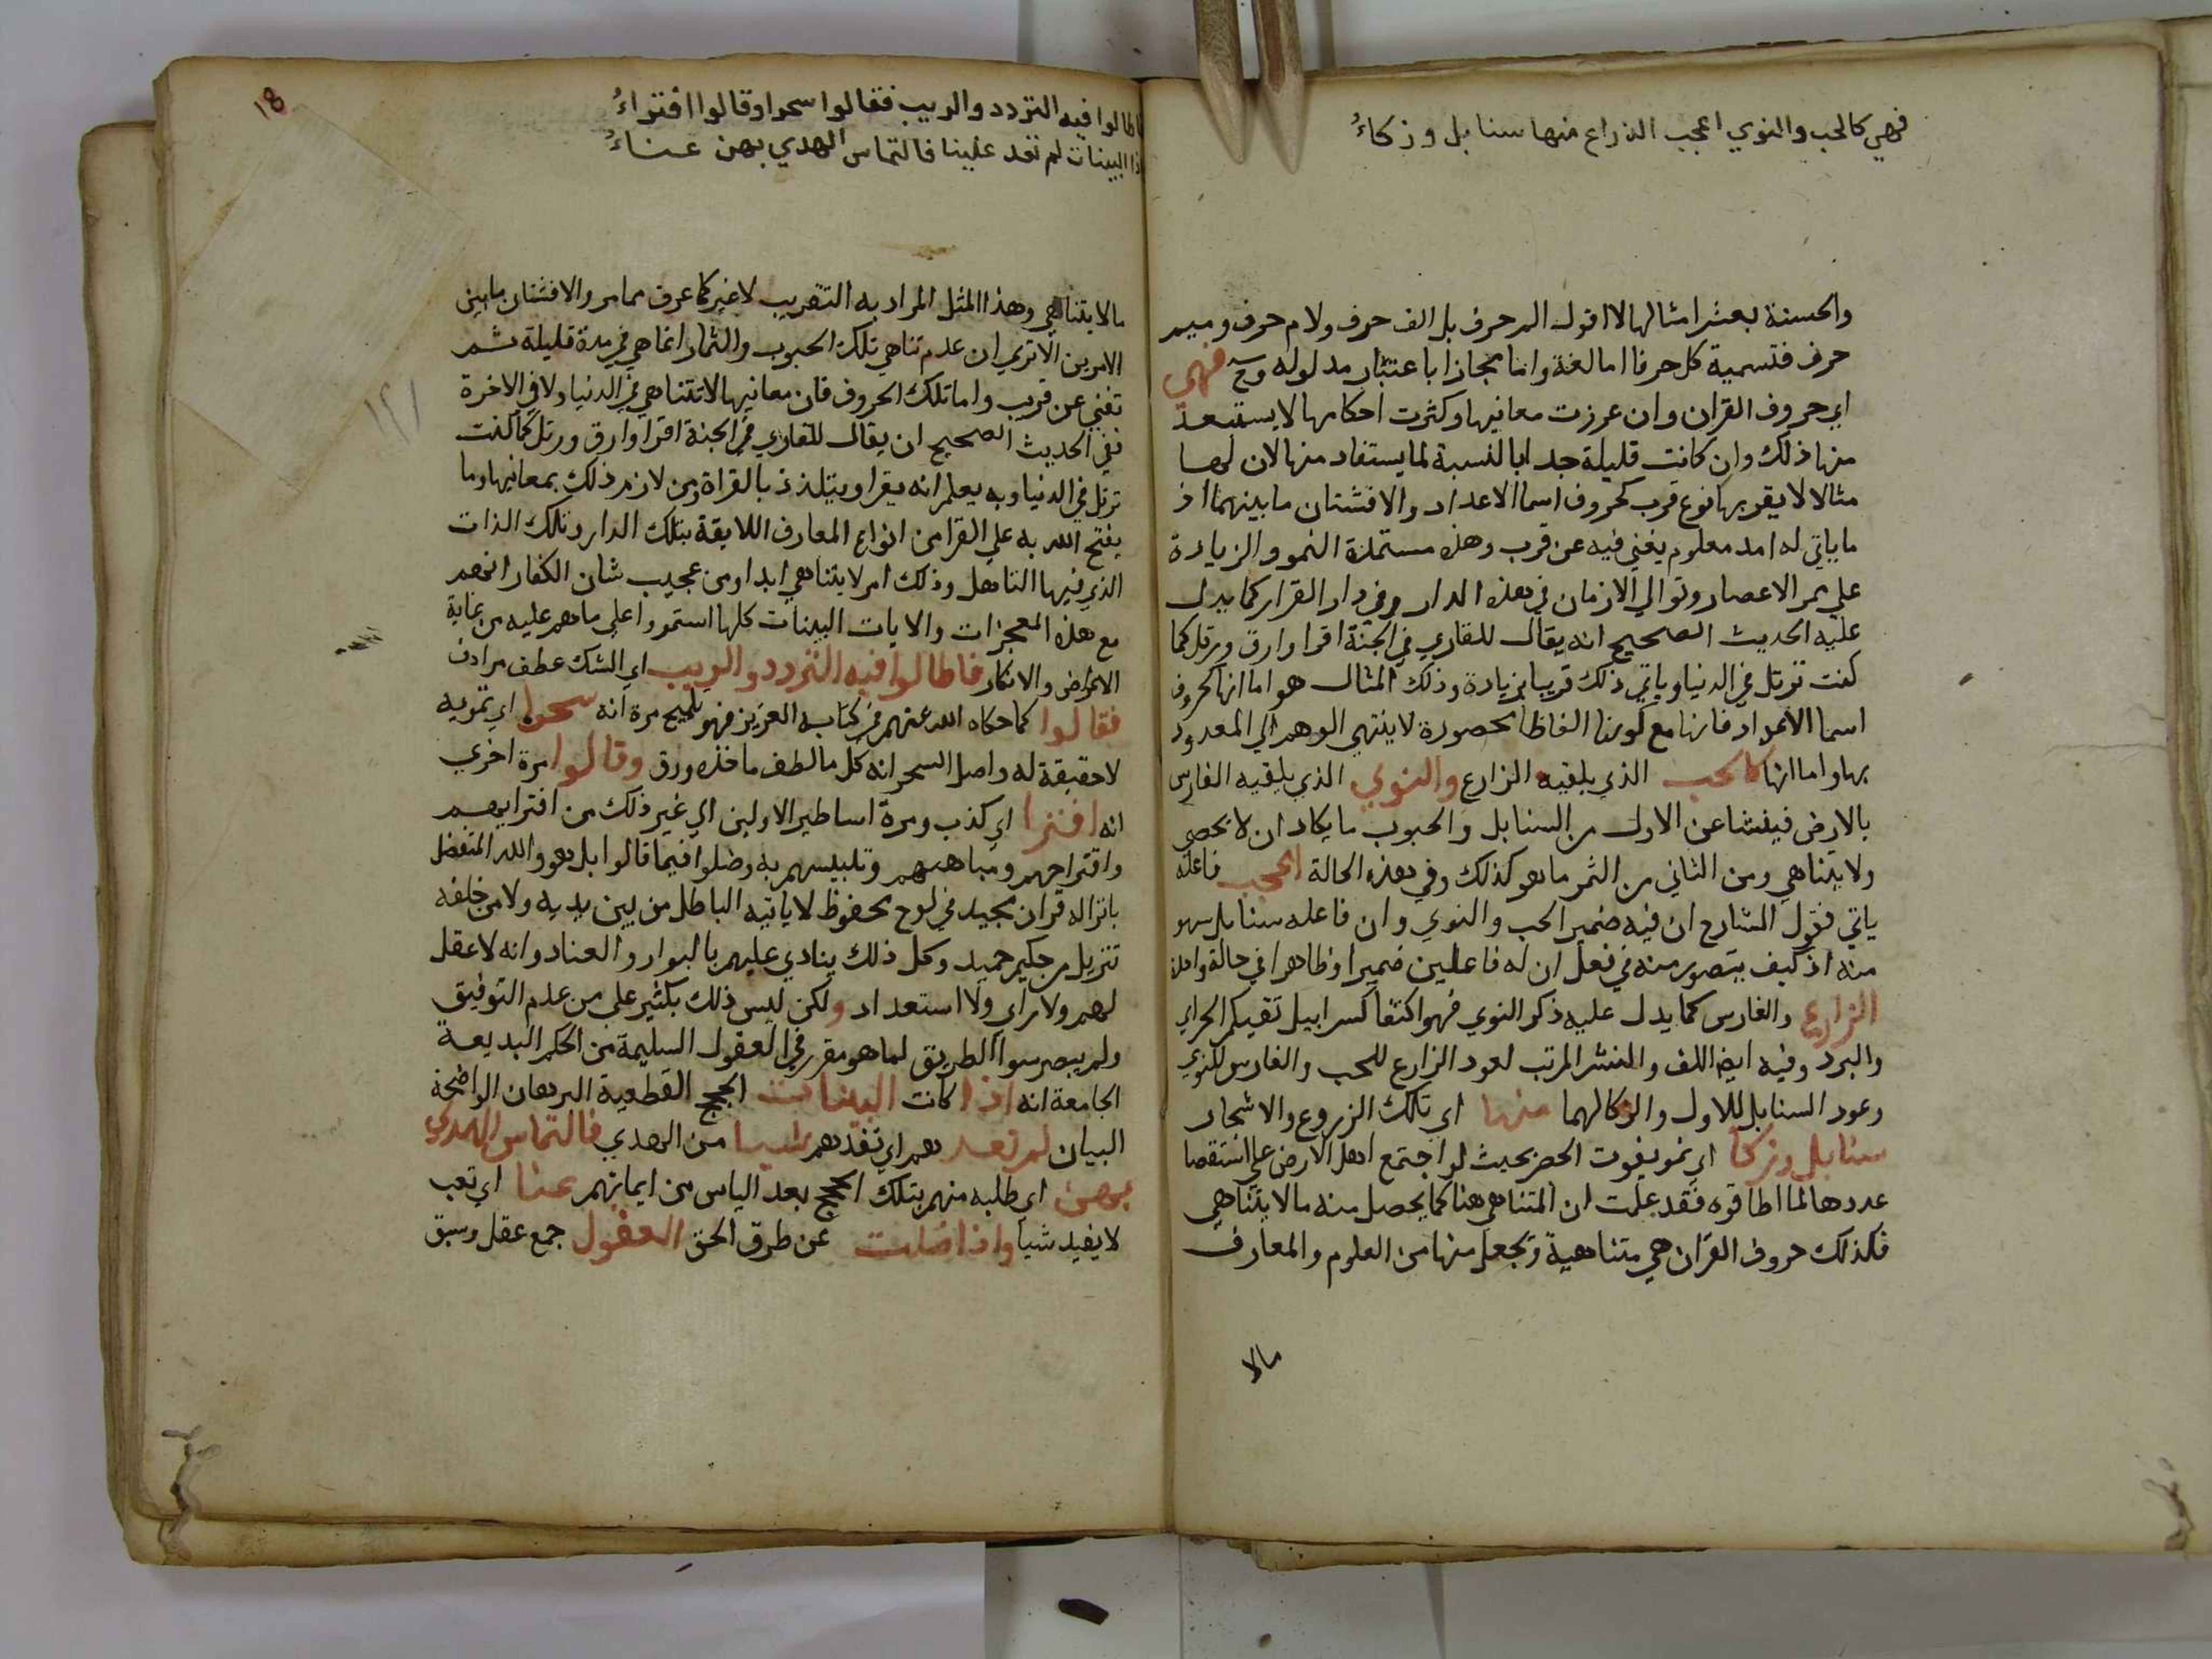 فهي كالحب والنوي اعجب الزراع منها سنابل وزكاءُ
والحسنة بعشر امثالها لا اقول الم حرف بل الف حرف ولام حرف وميم
حرف فتسمية كل حرفا اما لغة واما مجازا باعتبار مدلوله وح فهي
اي حروف القران وان عززت معانيها وكثرت احكامها لا يستبعد
منها ذلك وان كانت قليلة جدا بالنسبة لما يستفاد منها لان لها
مثالا لا يقربها نوع قرب كحروف اسما الاعداد والافشتان ما بينهما اذ
ما ياتي له امد معلوم يغني فيه عن قرب وهذه مستمدة النمو والزيادة
علي ممر الاعصار وتوالي الازمان في هذه الدار وفي دار القرار كما يدل
عليه الحديث الصحيح انه يقال للقاري في الجنة اقرا وارق ورتل كما
كنت ترتل في الدنيا وياتي ذلك قريبا بزيادة وذلك المثال هو اما انها كحروف
اسما الاعداد فانها مع كونها الفاظا محصورة لا ينتهي الوهم الي المعدود
بها واما انها كالحب الذي يلقيه الزارع والنوي الذي يلقيه الغارس
بالارض فينشا عن الاول من السنابل والحبوب ما يكاد ان لا يحصي
ولا يتناهي ومن الثاني من الثمر ما هو كذلك وفي هذه الحالة اعجب فاعله
ياتي فقول الشارح ان فيه ضمير الحب والنوي وان فاعله سنابل سهو
منه اذ كيف يتصور منه في فعل ان له فاعلين ضميرا وظاهرا في حالة واحدة
الزارع والغارس كما يدل عليه ذكر النوي فهو اكتفا كسرابيل تقيكم الحر اي
والبرد وفيه ايض اللف والنشر المرتب لعود الزارع للحب والغارس للنوي
وعود السنابل للاول والزكا لهما منها اي تلك الزروع والاشجار
سنابل وزكا اي نمو يفوت الحصر بحيث لو اجتمع اهل الارض علي استقصا
عددها لما اطاقوه فقد علمت ان المتناهي هنا كما يحصل منه ما لا يتناهي
فكذلك حروف القران هي متناهية وتجعل منها من العلوم والمعارف
مالا
١٨
فاطالوا فيه التردد والريب فقالوا سحرا وقالوا افتراءُ
اذا البينات لم تفد علينا فالتماس الهدي بهن عناءُ
مالا يتناهي وهذا المثل المراد به التقريب لا غير كما عرف مما مر والافشتان ما بين
الامرين الا تري ان عدم تناهي تلك الحبوب والثمار انما هي في مدة قليلة ثم
تفني عن قريب واما تلك الحروف فان معانيها لا تتناهي في الدنيا ولا في الاخرة
ففي الحديث الصحيح ان يقال للقاري في الجنة اقرا وارق ورتل كما كنت
ترتل في الدنيا وبه يعلم انه يقرا ويتلذذ بالقراة ومن لازم ذلك بمعانيها وما
يفتح الله به علي القرا من انواع المعارف اللايقة بتلك الدار وتلك الذات
الذي فيها التاهل وذلك امر لا يتناهي ابدا ومن عجيب شان الكفار انهم
مع هذه المعجزات والايات البينات كلها استمروا علي ما هم عليه من غاية
الاعراض والانكار فاطالوا فيه التردد والريب اي الشك عطف مرادف
فقالوا كما حكاه الله عنهم في كتابه العزيز فهو تلميح مرة انه سحر اي تمويه
لا حقيقة له واصل السحر انه كل ما لطف ماخذه ودق وقالوا مرة اخري
انه افترا اي كذب ومرة اساطير الاولين الي غير ذلك من افترايهم
واقتراحهم ومباهتهم وتلبيسهم به وضلوا فيما قالوا بل هو والله المتفضل
بانزاله قران مجيد في لوح محفوظ لا ياتيه الباطل من بين يديه ولا من خلفه
تنزيل من حكيم حميد وكل ذلك ينادي عليهم بالبوار والعناد وانه لا عقل
لهم ولا راي ولا استعداد ولكن ليس ذلك بكثير علي من عدم التوفيق
ولم يبصر سوا الطريق لما هو مقرر في العقول السليمة من الحكم البديعة
الجامعة انه اذا كانت البينات الحجج القطعية البرهان الواضحة
البيان لم تفد هم اي تفدهم شيا من الهدي فالتماس الهدي
بهن اي طلبه منهم بتلك الحجج بعد الياس من ايمانهم عنا اي تعب
لا يفيد شيا واذا ضلت عن طرق الحق العقول جمع عقل وسبق
١٢١